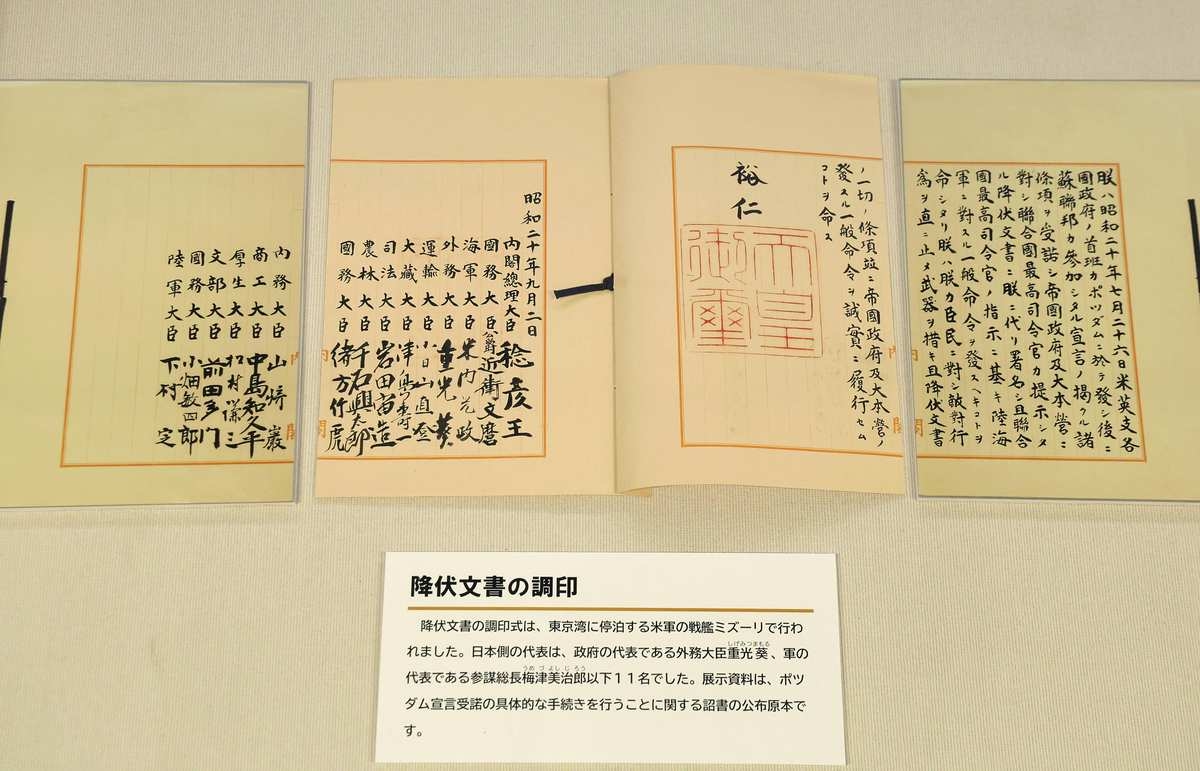 朕ハ昭和二十年七月二十六日米英支各
國政府ノ首班カポツダムニ於テ發シ後ニ
蘇聯邦カ參加シタル宣言ノ掲クル諸
條項ヲ受諾シ帝國政府及大本營ニ
對シ聯合國最高司令官カ提示シタ
ル降伏文書ニ朕ニ代リ署名シ且聯合
國最高司令官ノ指示ニ基キ陸海
軍ニ對スル一般命令ヲ發スヘキコトヲ
命シタリ朕ハ朕カ臣民ニ對シ敵對行
爲ヲ直ニ止メ武器ヲ措キ且降伏文書
ノ一切ノ條項竝ニ帝國政府及大本營ノ
發スル一般命令ヲ誠實ニ履行セム
コトヲ命ス
裕仁
天皇
御璽
昭和二十年九月二日
内閣總理大臣 稔彦王
國務大臣 公爵 近衛文麿
海軍大臣 米内光政
外務大臣 重光葵
運輸大臣 小日山直登
大藏大臣 津島壽一
司法大臣 岩田宙造
農林大臣 千石興太郎
國務大臣 緒方竹虎
内務大臣 山崎巖
商工大臣 中島知久平
厚生大臣 松村謙三
文部大臣 前田多門
國務大臣 小畑敏四郎
陸軍大臣 下村定
降伏文書の調印
降伏文書の調印式は、東京湾に停泊する米軍の戦艦ミズーリで行わ
しげみつまもる
れました。日本側の代表は、政府の代表である外務大臣重光葵、軍の
うめづよしじろう
代表である参謀総長梅津美治郎以下11名でした。展示資料は、ポツ
ダム宣言受諾の具体的な手続きを行うことに関する詔書の公布原本で
す。